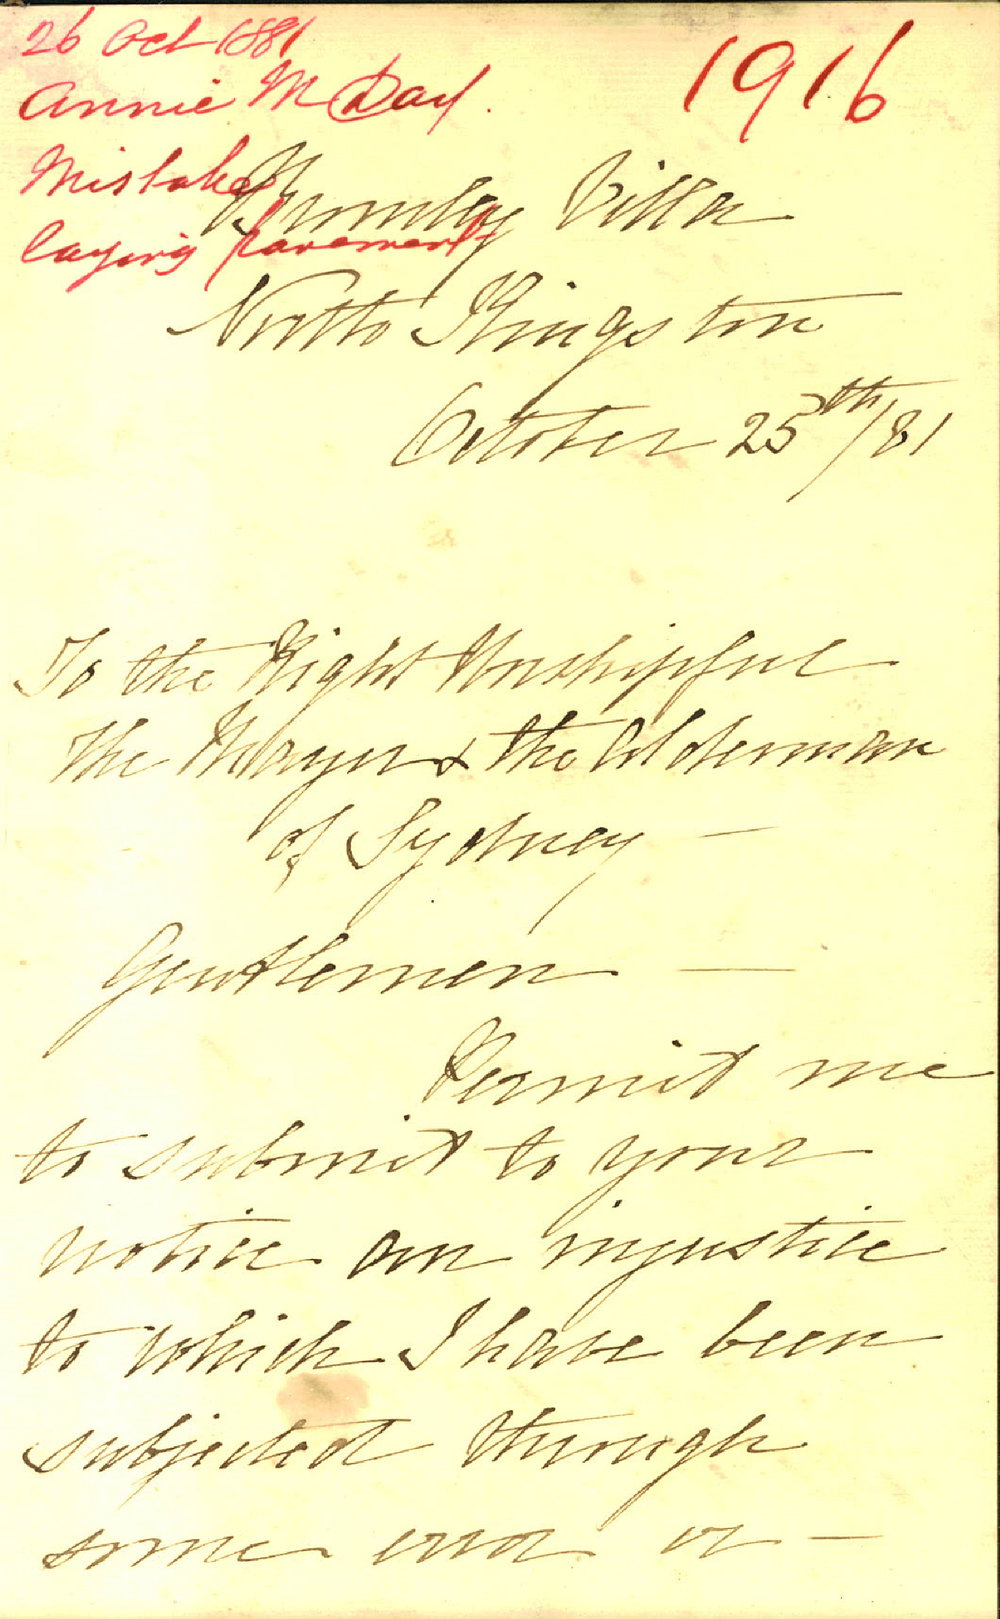 26 Oct 1881
Annie M Day.
1916
Mistake
laying pavement
Villa
North Kingston
October 25th/81
To the Right Worshipful
The Mayor & the Alderman
of Sydney —
Gentlemen —
Permit me
to submit to your
notice an injustice
to which I have been
subjected through
some error or —